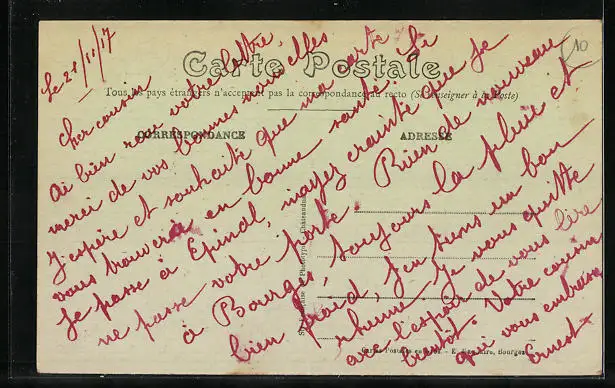 Le 21/11/17
Cher cousin
Ai bien reçu votre lettre
merci de vos bonnes nouvelles
J'espère et souhaite que ma carte
vous trouvera en bonne santé. Si
Je passe à Epinal, crainte que Je
ne passe votre porte. Rien de nouveau
à Bourges, toujours la pluie et
bien froid, J'en tiens un bon
rhume. Je vous quitte
avec l'espoir de vous lire
bientôt. Votre cousin
qui vous embrasse
Ernest
Carte Postale
Tous les pays étrangers n'acceptent pas la correspondance au recto (Se renseigner à la Poste)
CORRESPONDANCE
ADRESSE
10
Phototypie Châteaudun
Bourges